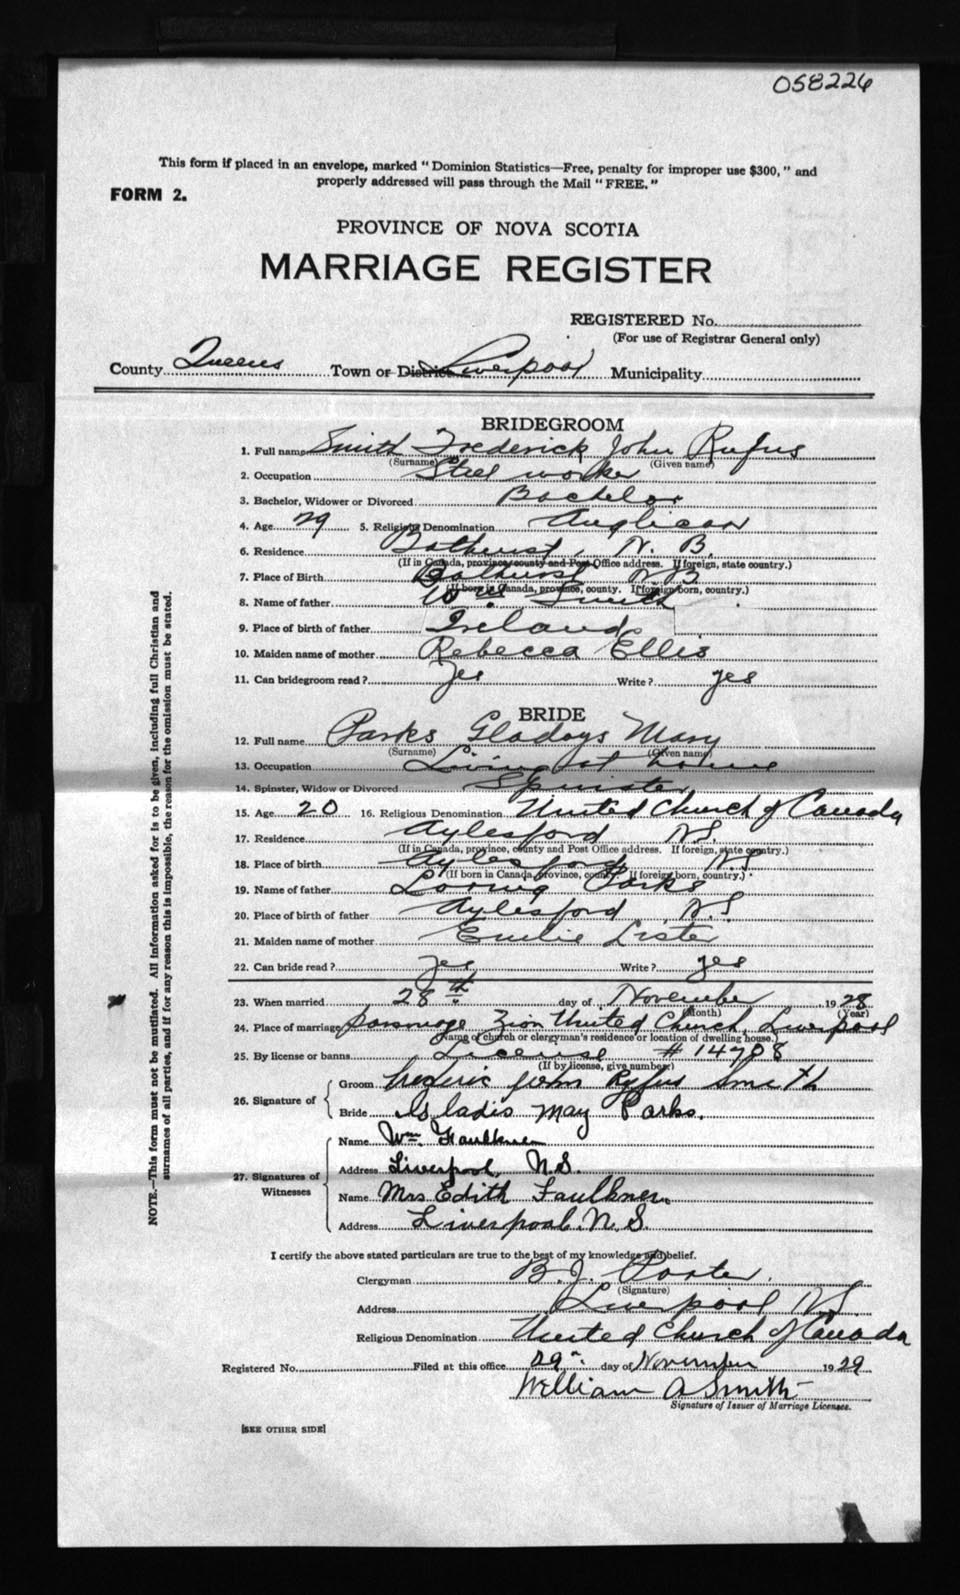 058226
This form if placed in an envelope, marked "Dominion Statistics—Free, penalty for improper use $300," and
properly addressed will pass through the Mail "FREE."
FORM 2.
PROVINCE OF NOVA SCOTIA
MARRIAGE REGISTER
REGISTERED No.
(For use of Registrar General only)
County Queens Town or District Liverpool Municipality
BRIDEGROOM
1. Full name Smith Frederick John Rufus
(Surname) (Given name)
2. Occupation Steel worker
3. Bachelor, Widower or Divorced Bachelor
4. Age 29 5. Religious Denomination Anglican
6. Residence Bathurst, N. B.
(If in Canada, province, county and Post Office address. If foreign, state country.)
7. Place of Birth Bathurst N.B
(If born in Canada, province, county. If foreign born, country.)
8. Name of father Smith
9. Place of birth of father Ireland
10. Maiden name of mother Rebecca Ellis
11. Can bridegroom read? Yes Write? yes
BRIDE
12. Full name Parks Gladys Mary
(Surname) (Given name)
13. Occupation Living at home
14. Spinster, Widow or Divorced Spinster
15. Age 20 16. Religious Denomination United Church of Canada
17. Residence Aylesford N.S.
(If in Canada, province, county and Post Office address. If foreign, state country.)
18. Place of birth Aylesford N.S
(If born in Canada, province, county. If foreign born, country.)
19. Name of father Loring Parks
20. Place of birth of father Aylesford, N.S.
21. Maiden name of mother Emilie Lister
22. Can bride read? Yes Write? yes
23. When married 28th day of November 1928
(Month) (Year)
24. Place of marriage parsonage Zion United Church, Liverpool
(Name of church or clergyman's residence or location of dwelling house.)
25. By license or banns License #14708
(If by license, give number.)
26. Signature of
Groom frederic john Rufus Smith
Bride Gladis May Parks.
27. Signatures of Witnesses
Name Wm. Faulkner
Address Liverpool, N.S.
Name Mrs Edith Faulkner.
Address Liverpool. N. S.
I certify the above stated particulars are true to the best of my knowledge and belief.
Clergyman B. J. Porter.
(Signature)
Address Liverpool N.S.
Religious Denomination United Church of Canada
Registered No. Filed at this office 29th day of November 1929
William A Smith
Signature of Issuer of Marriage Licenses.
[SEE OTHER SIDE]
NOTE.—This form must not be mutilated. All information asked for is to be given, including full Christian and
surnames of all parties, and if for any reason this is impossible, the reason for the omission must be stated.